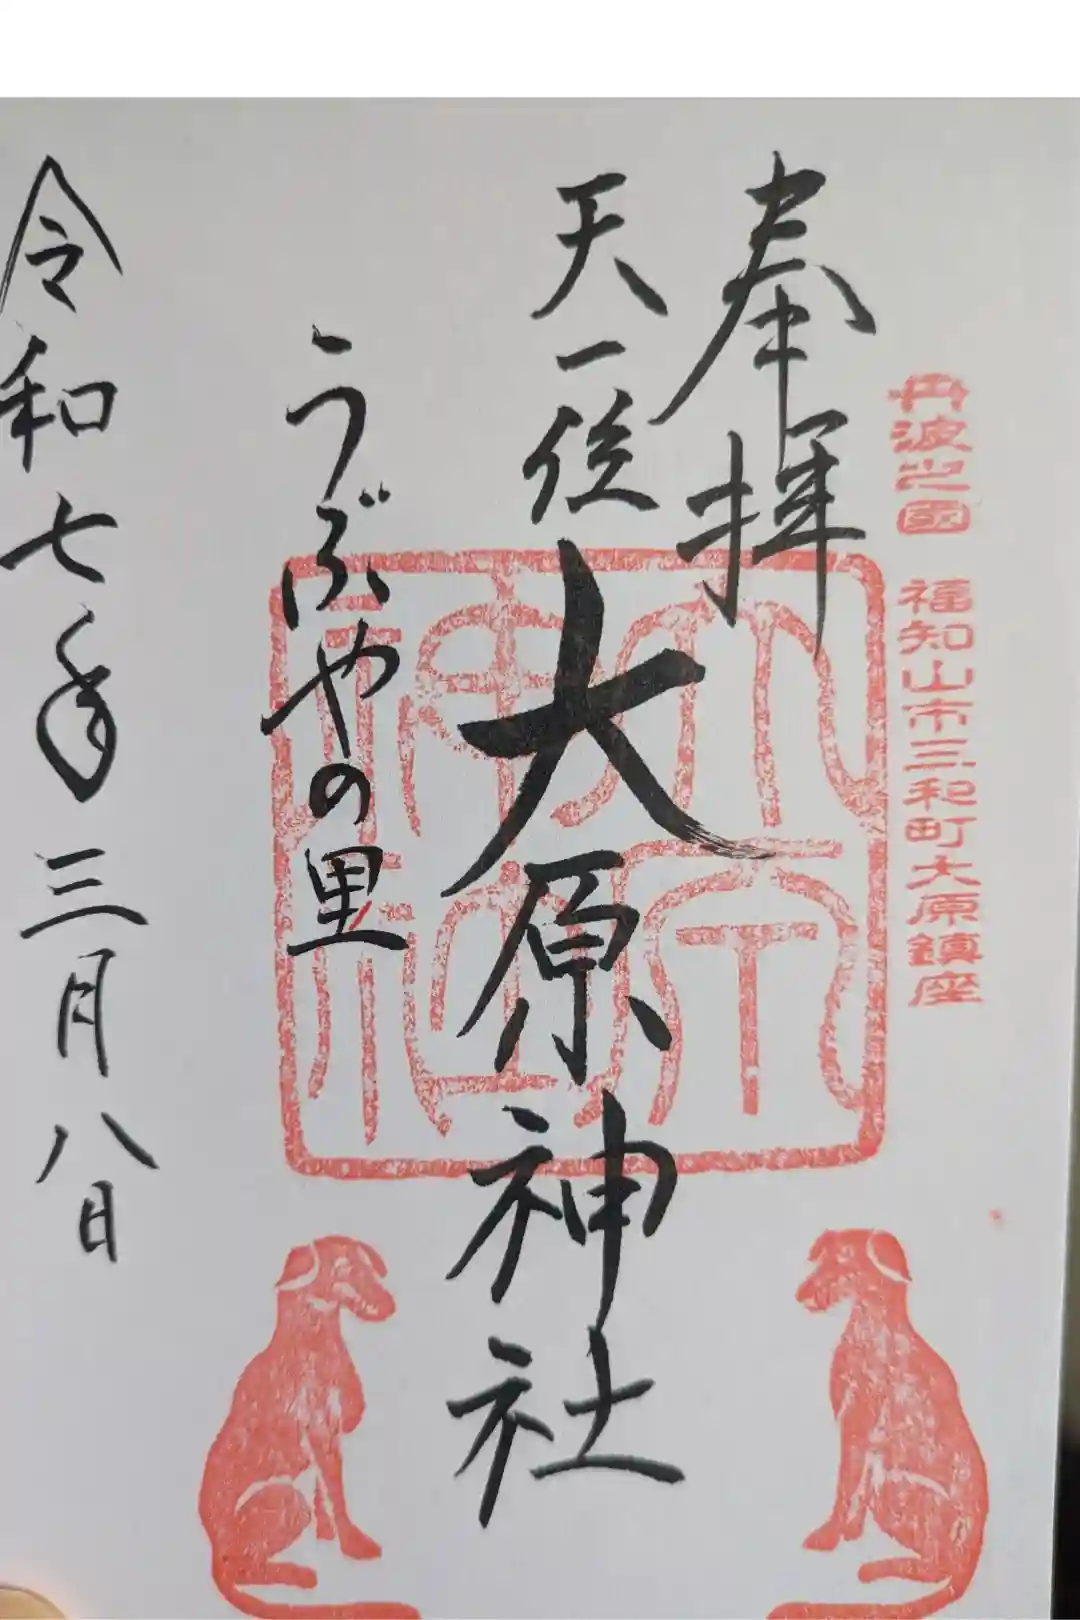 丹波之國 福知山市三和町大原鎮座
奉拝
天一位 大原神社
うぶやの里
令和七年三月八日